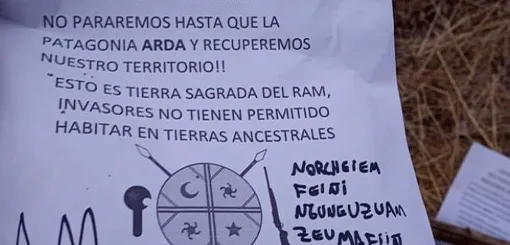 NO PARAREMOS HASTA QUE LA
PATAGONIA ARDA Y RECUPEREMOS
NUESTRO TERRITORIO!!
"ESTO ES TIERRA SAGRADA DEL RAM,
INVASORES NO TIENEN PERMITIDO
HABITAR EN TIERRAS ANCESTRALES
NORCHEIEM
FEIJI
NGUNGUZUAM